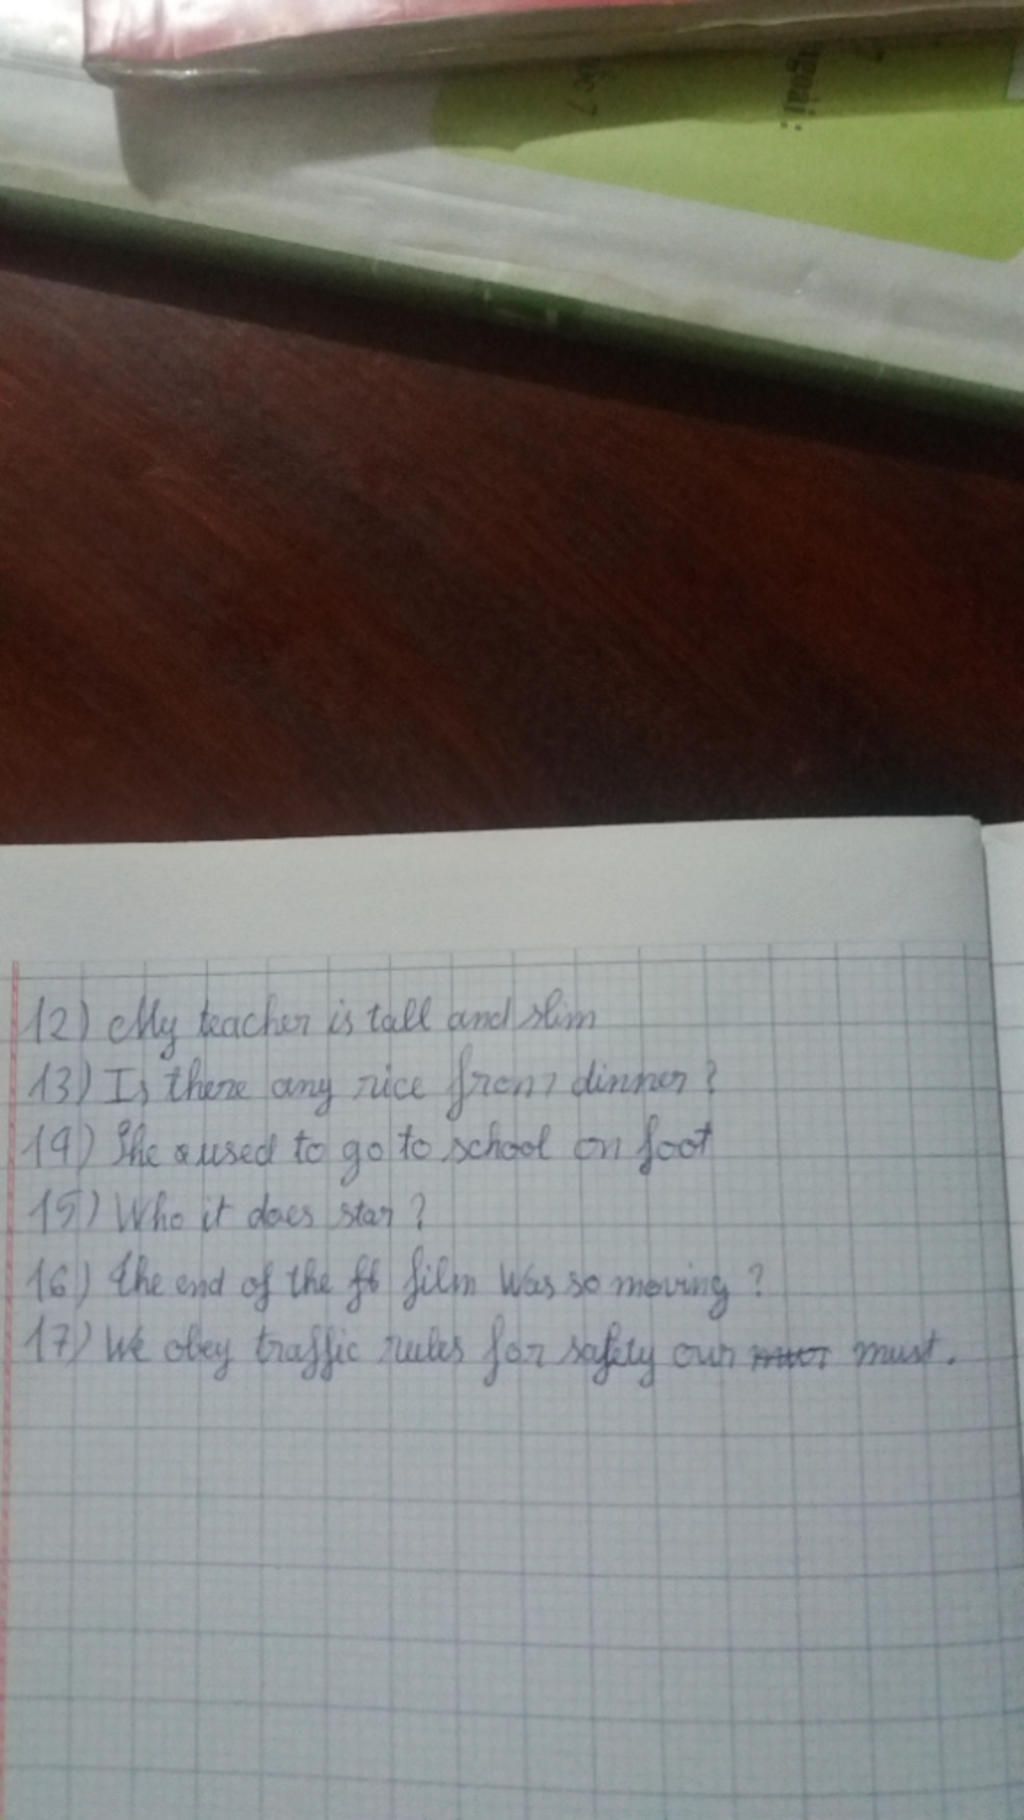 12) My teacher is tall and slim
13) Is there any rice from dinner ?
14) She used to go to school on foot
15) Who it does star ?
16) The end of the film was so moving ?
17) We obey traffic rules for safety our must.